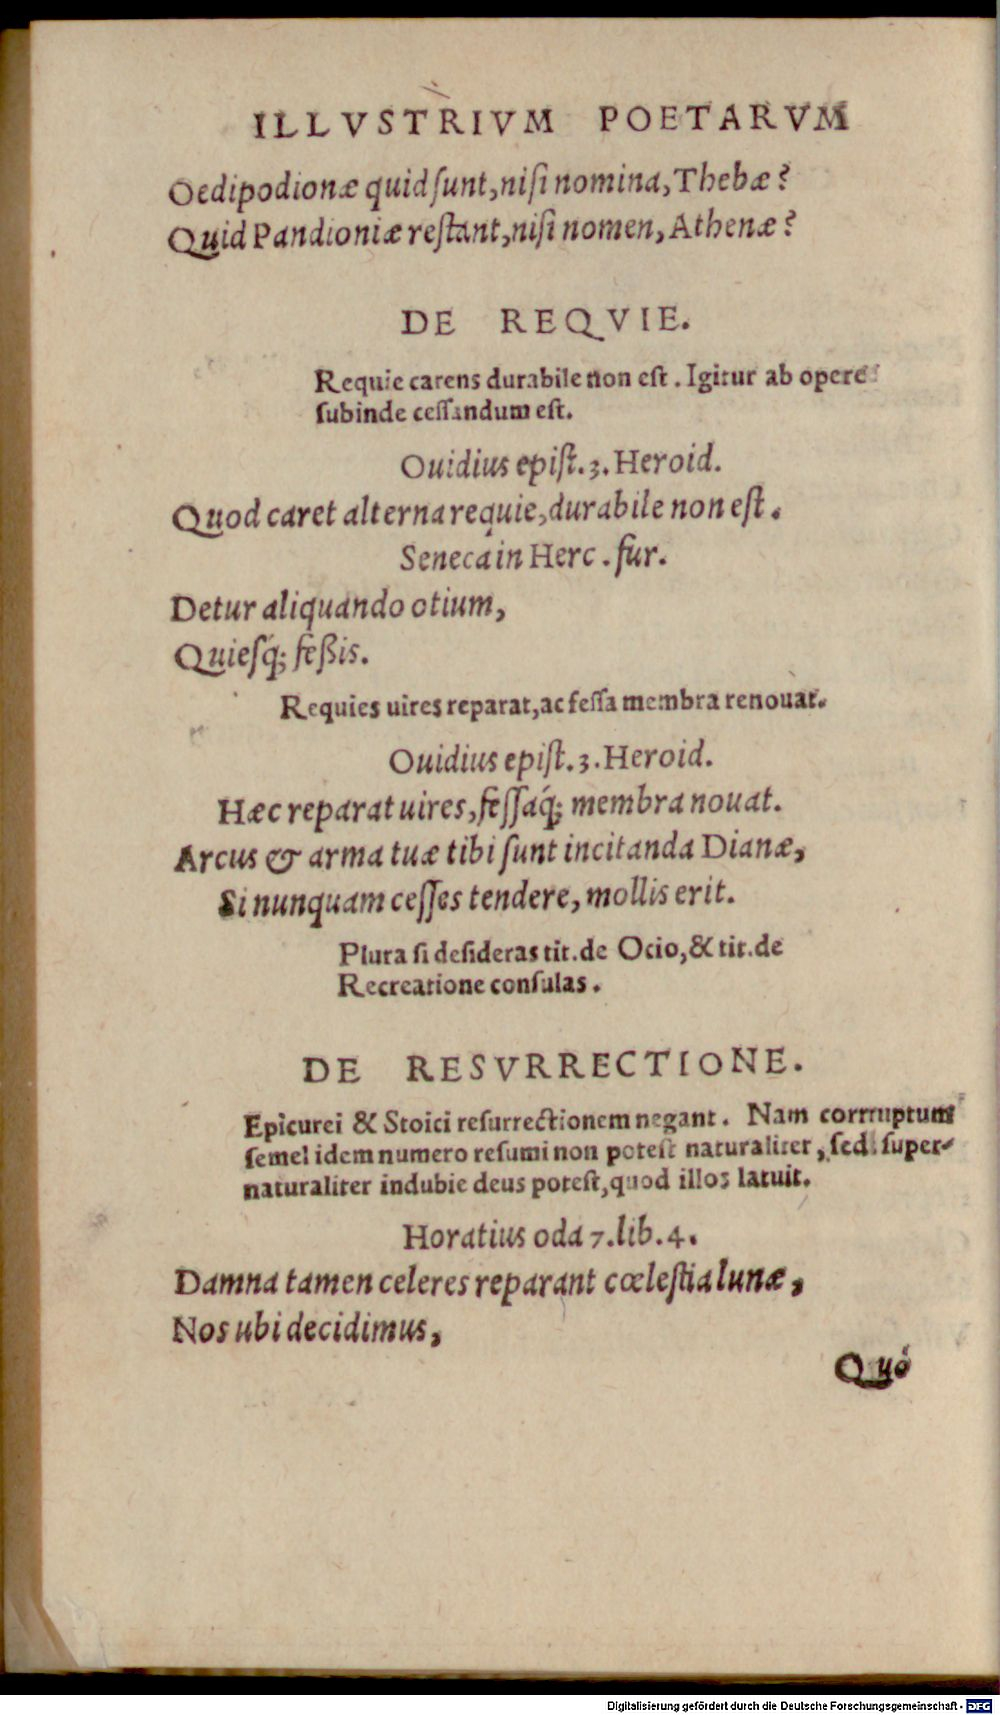 ILLVSTRIVM POETARVM
Oedipodionæ quid ſunt, niſi nomina, Thebæ?
Quid Pandioniæ reſtant, niſi nomen, Athenæ?
DE REQVIE.
Requie carens durabile non eſt. Igitur ab opere
ſubinde ceſſandum eſt.
Ouidius epiſt. 3. Heroid.
Quod caret alterna requie, durabile non eſt.
Seneca in Herc. fur.
Detur aliquando otium,
Quieſq́; feßis.
Requies uires reparat, ac feſſa membra renouat.
Ouidius epiſt. 3. Heroid.
Hæc reparat uires, feſſaq́; membra nouat.
Arcus & arma tuæ tibi ſunt incitanda Dianæ,
Si nunquam ceſſes tendere, mollis erit.
Plura ſi deſideras tit. de Ocio, & tit. de
Recreatione conſulas.
DE RESVRRECTIONE.
Epicurei & Stoici reſurrectionem negant. Nam corrruptum
ſemel idem numero reſumi non poteſt naturaliter, ſed ſuper-
naturaliter indubie deus poteſt, quod illos latuit.
Horatius oda 7. lib. 4.
Damna tamen celeres reparant cœleſtia lunæ,
Nos ubi decidimus,
Quó
Digitalisierung gefördert durch die Deutsche Forschungsgemeinschaft - DFG